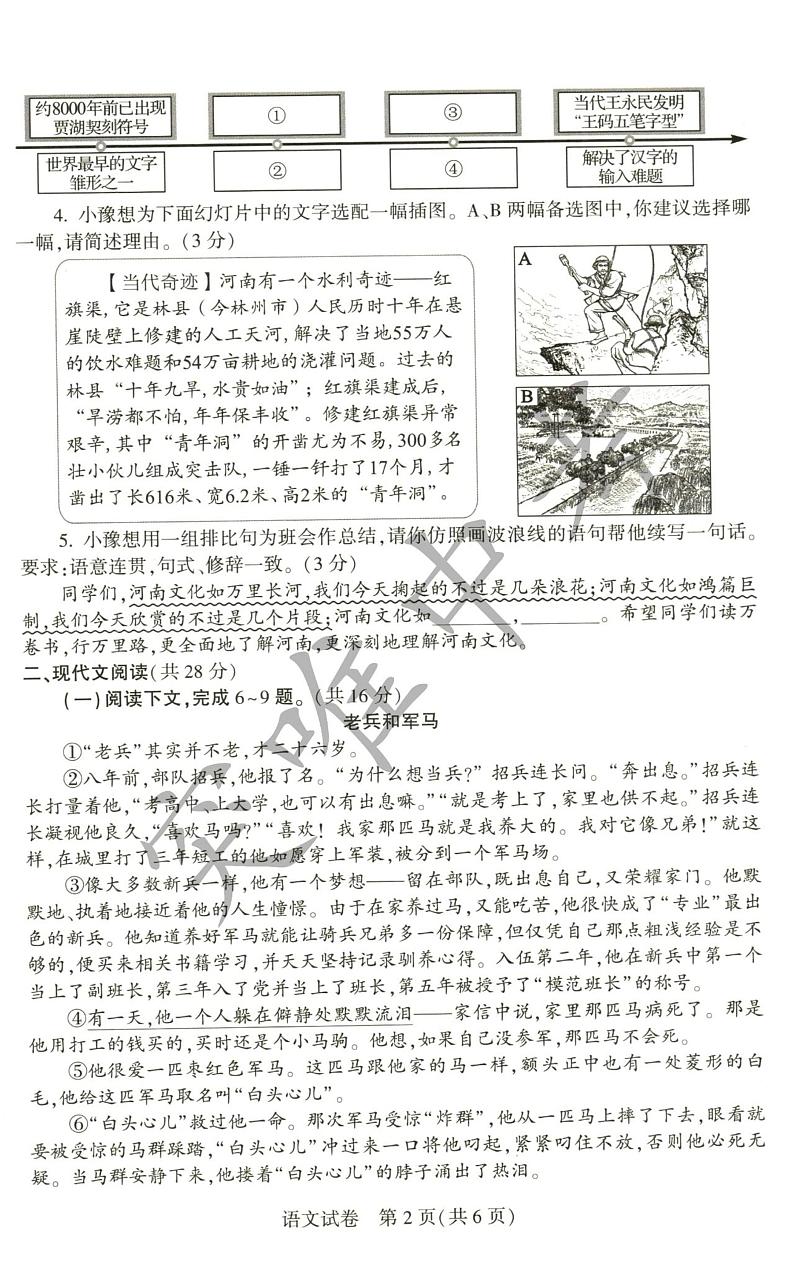 约8000年前已出现
贾湖契刻符号
①
③
当代王永民发明
“王码五笔字型”
世界最早的文字
雏形之一
②
④
解决了汉字的
输入难题
4. 小豫想为下面幻灯片中的文字选配一幅插图。A、B 两幅备选图中,你建议选择哪
一幅,请简述理由。(3 分)
【当代奇迹】河南有一个水利奇迹——红
旗渠,它是林县(今林州市)人民历时十年在悬
崖陡壁上修建的人工天河,解决了当地55万人
的饮水难题和54万亩耕地的浇灌问题。过去的
林县“十年九旱,水贵如油”;红旗渠建成后,
“旱涝都不怕,年年保丰收”。修建红旗渠异常
艰辛,其中“青年洞”的开凿尤为不易,300多名
壮小伙儿组成突击队,一锤一钎打了17个月,才
凿出了长616米、宽6.2米、高2米的“青年洞”。
A
B
5. 小豫想用一组排比句为班会作总结,请你仿照画波浪线的语句帮他续写一句话。
要求:语意连贯,句式、修辞一致。(3 分)
同学们,河南文化如万里长河,我们今天掬起的不过是几朵浪花;河南文化如鸿篇巨
制,我们今天欣赏的不过是几个片段;河南文化如________,________。希望同学们读万
卷书,行万里路,更全面地了解河南,更深刻地理解河南文化。
二、现代文阅读(共 28 分)
(一)阅读下文,完成 6~9 题。(共 16 分)
老兵和军马
①“老兵”其实并不老,才二十六岁。
②八年前,部队招兵,他报了名。“为什么想当兵?”招兵连长问。“奔出息。”招兵连
长打量着他,“考高中、上大学,也可以有出息嘛。”“就是考上了,家里也供不起。”招兵连
长凝视他良久,“喜欢马吗?”“喜欢！我家那匹马就是我养大的。我对它像兄弟!”就这
样,在城里打了三年短工的他如愿穿上军装,被分到一个军马场。
③像大多数新兵一样,他有一个梦想——留在部队,既出息自己,又荣耀家门。他默
默地、执着地接近着他的人生憧憬。由于在家养过马,又能吃苦,他很快成了“专业”最出
色的新兵。他知道养好军马就能让骑兵兄弟多一份保障,但仅凭自己那点粗浅经验是不
够的,便买来相关书籍学习,并天天坚持记录驯养心得。入伍第二年,他在新兵中第一个
当上了副班长,第三年入了党并当上了班长,第五年被授予了“模范班长”的称号。
④有一天,他一个人躲在僻静处默默流泪——家信中说,家里那匹马病死了。那是
他用打工的钱买的,买时还是个小马驹。他想,如果自己没参军,那匹马不会死。
⑤他很爱一匹枣红色军马。这匹马跟他家的马一样,额头正中也有一处菱形的白
毛,他给这匹军马取名叫“白头心儿”。
⑥“白头心儿”救过他一命。那次军马受惊“炸群”,他从一匹马上摔了下去,眼看就
要被受惊的马群踩踏,“白头心儿”冲过来一口将他叼起,紧紧叼住不放,否则他必死无
疑。当马群安静下来,他搂着“白头心儿”的脖子涌出了热泪。
语文试卷 第 2 页(共 6 页)